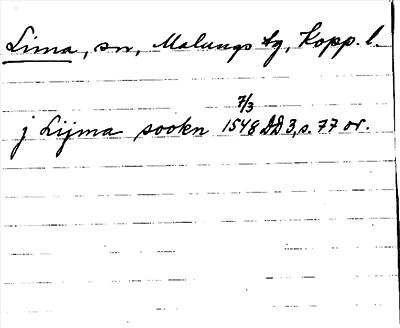 Lima, sn, Malungs tg, Kopp. l.
7/3
j Lijma sookn 1548 DD 3, s. 77 or.